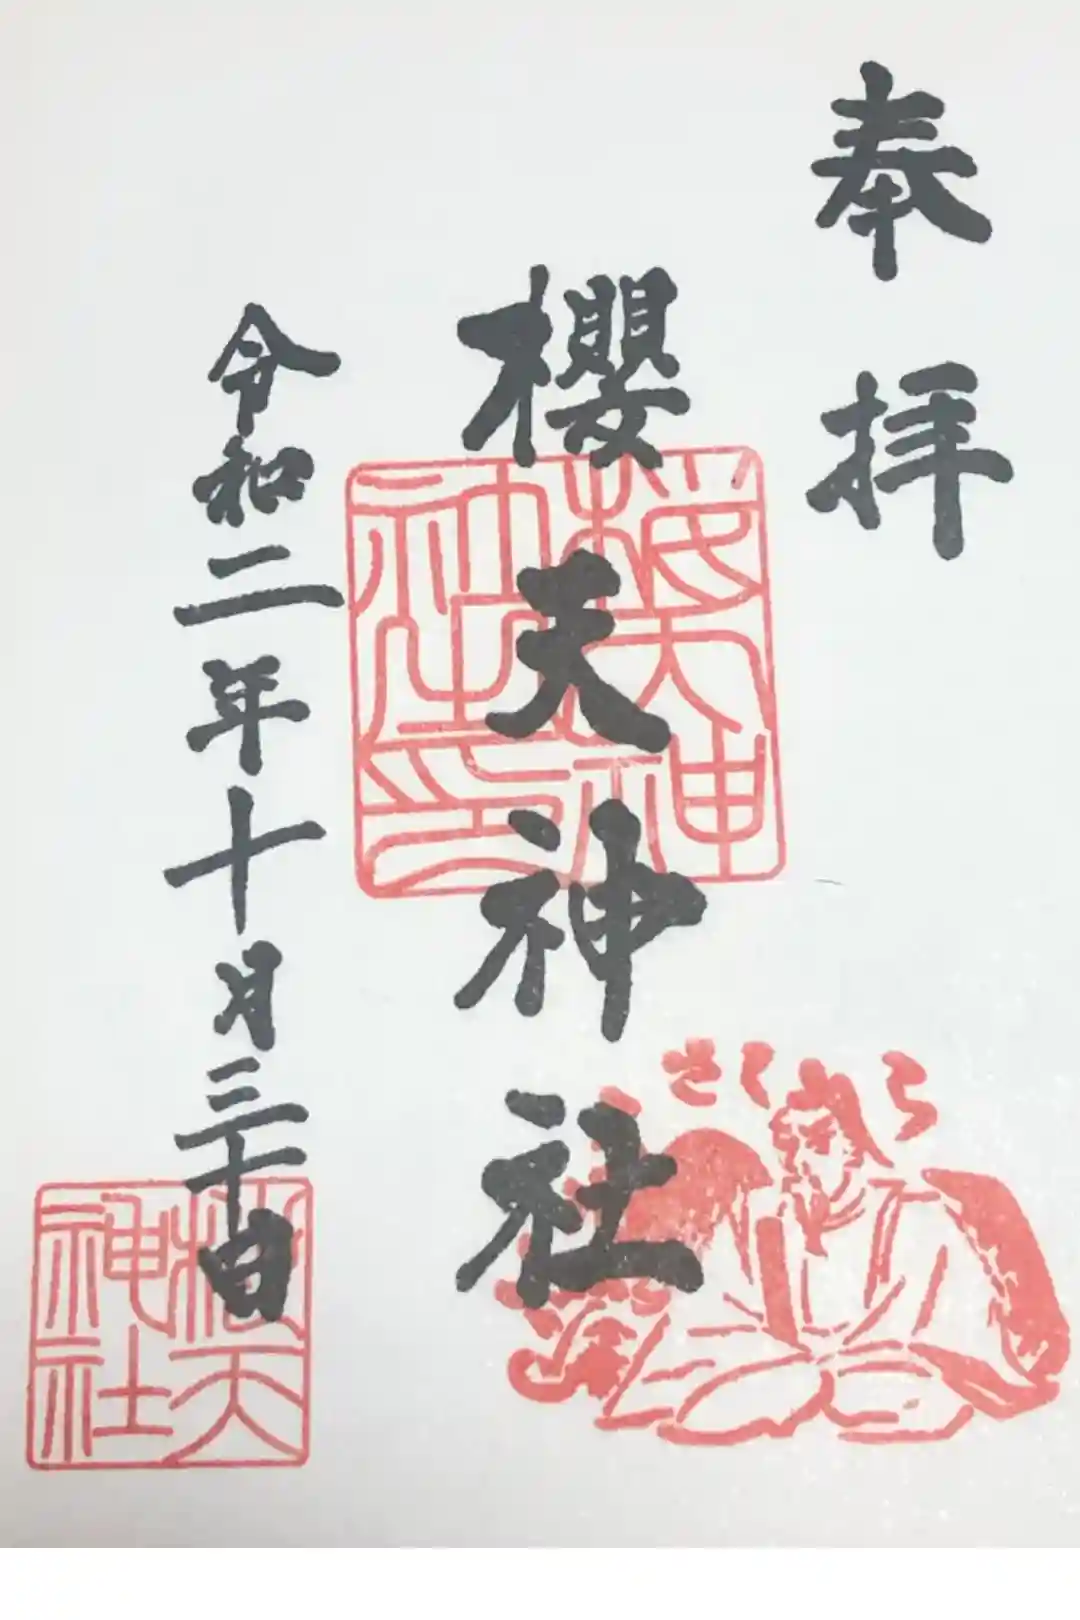 奉拝
櫻天神社
桜天神社之印
さくら
令和二年十月三十日
桜天神社